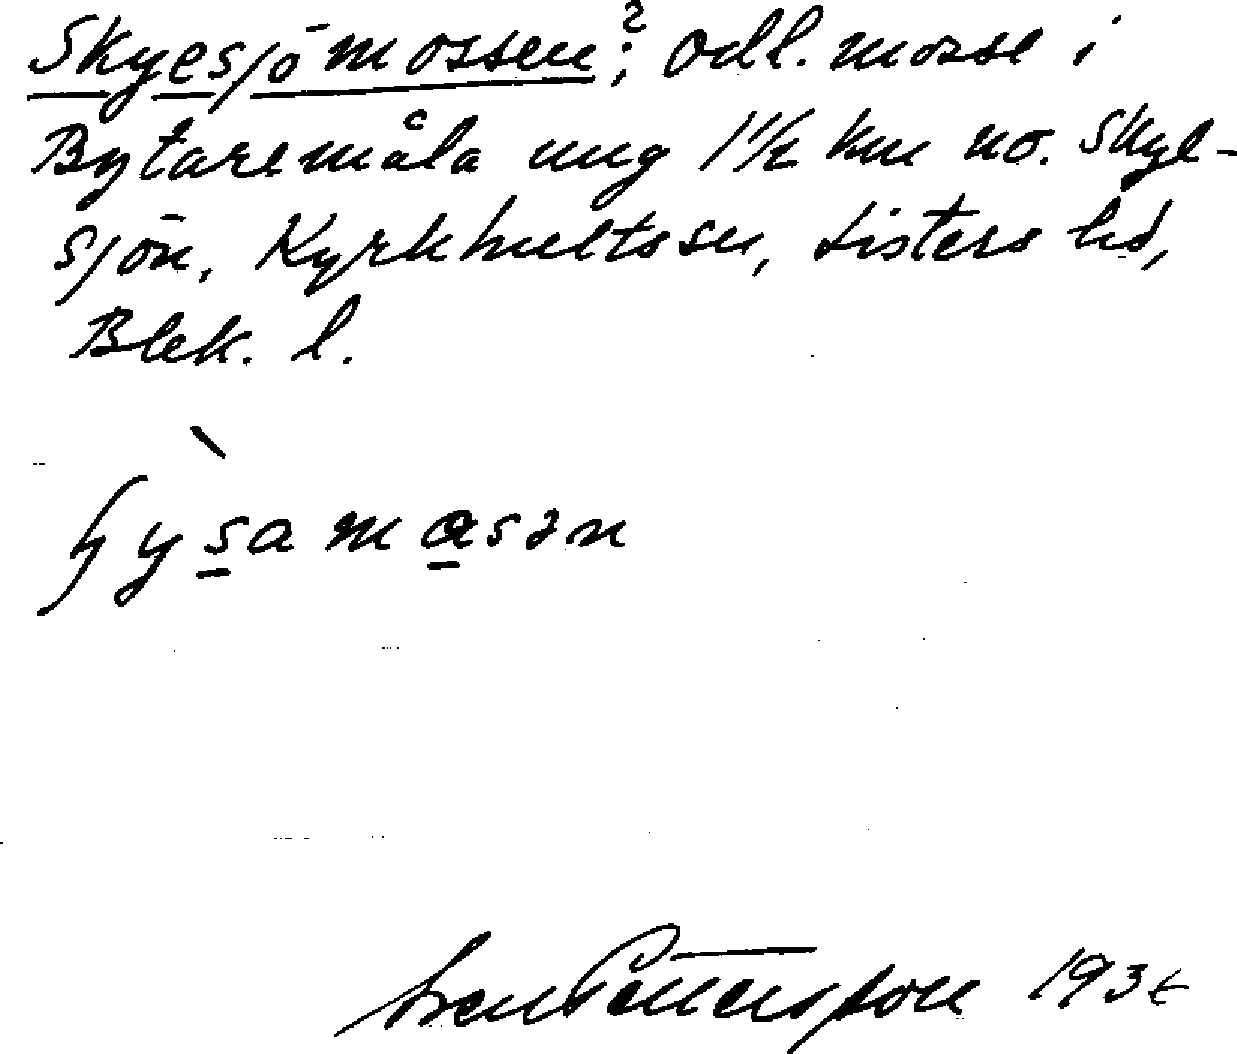 Skyesjömossen?; odl. mosse i
Bytaremåla ung 1 1/2 km no. Skye-
sjön, Kyrkhults sn, Listers hd,
Blek. l.
ʃỳsamasən
Sven Pettersson 193